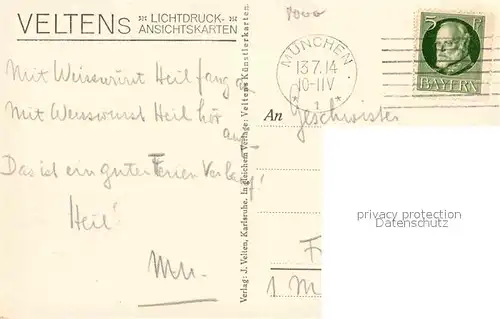 VELTENS LICHTDRUCK-
ANSICHTSKARTEN
8000
MÜNCHEN
13.7.14
10-11V
* 1 *
5 Pf
BAYERN
Mit Weisswurst Heil fang an
Mit Weisswurst Heil hör
auf
Das ist ein guter Ferien Verlauf!
Heil!
An Geschwister
Verlag: J. Velten, Karlsruhe. In gleichem Verlage: Veltens Künstlerkarten.
F
1 M
privacy protection
Datenschutz